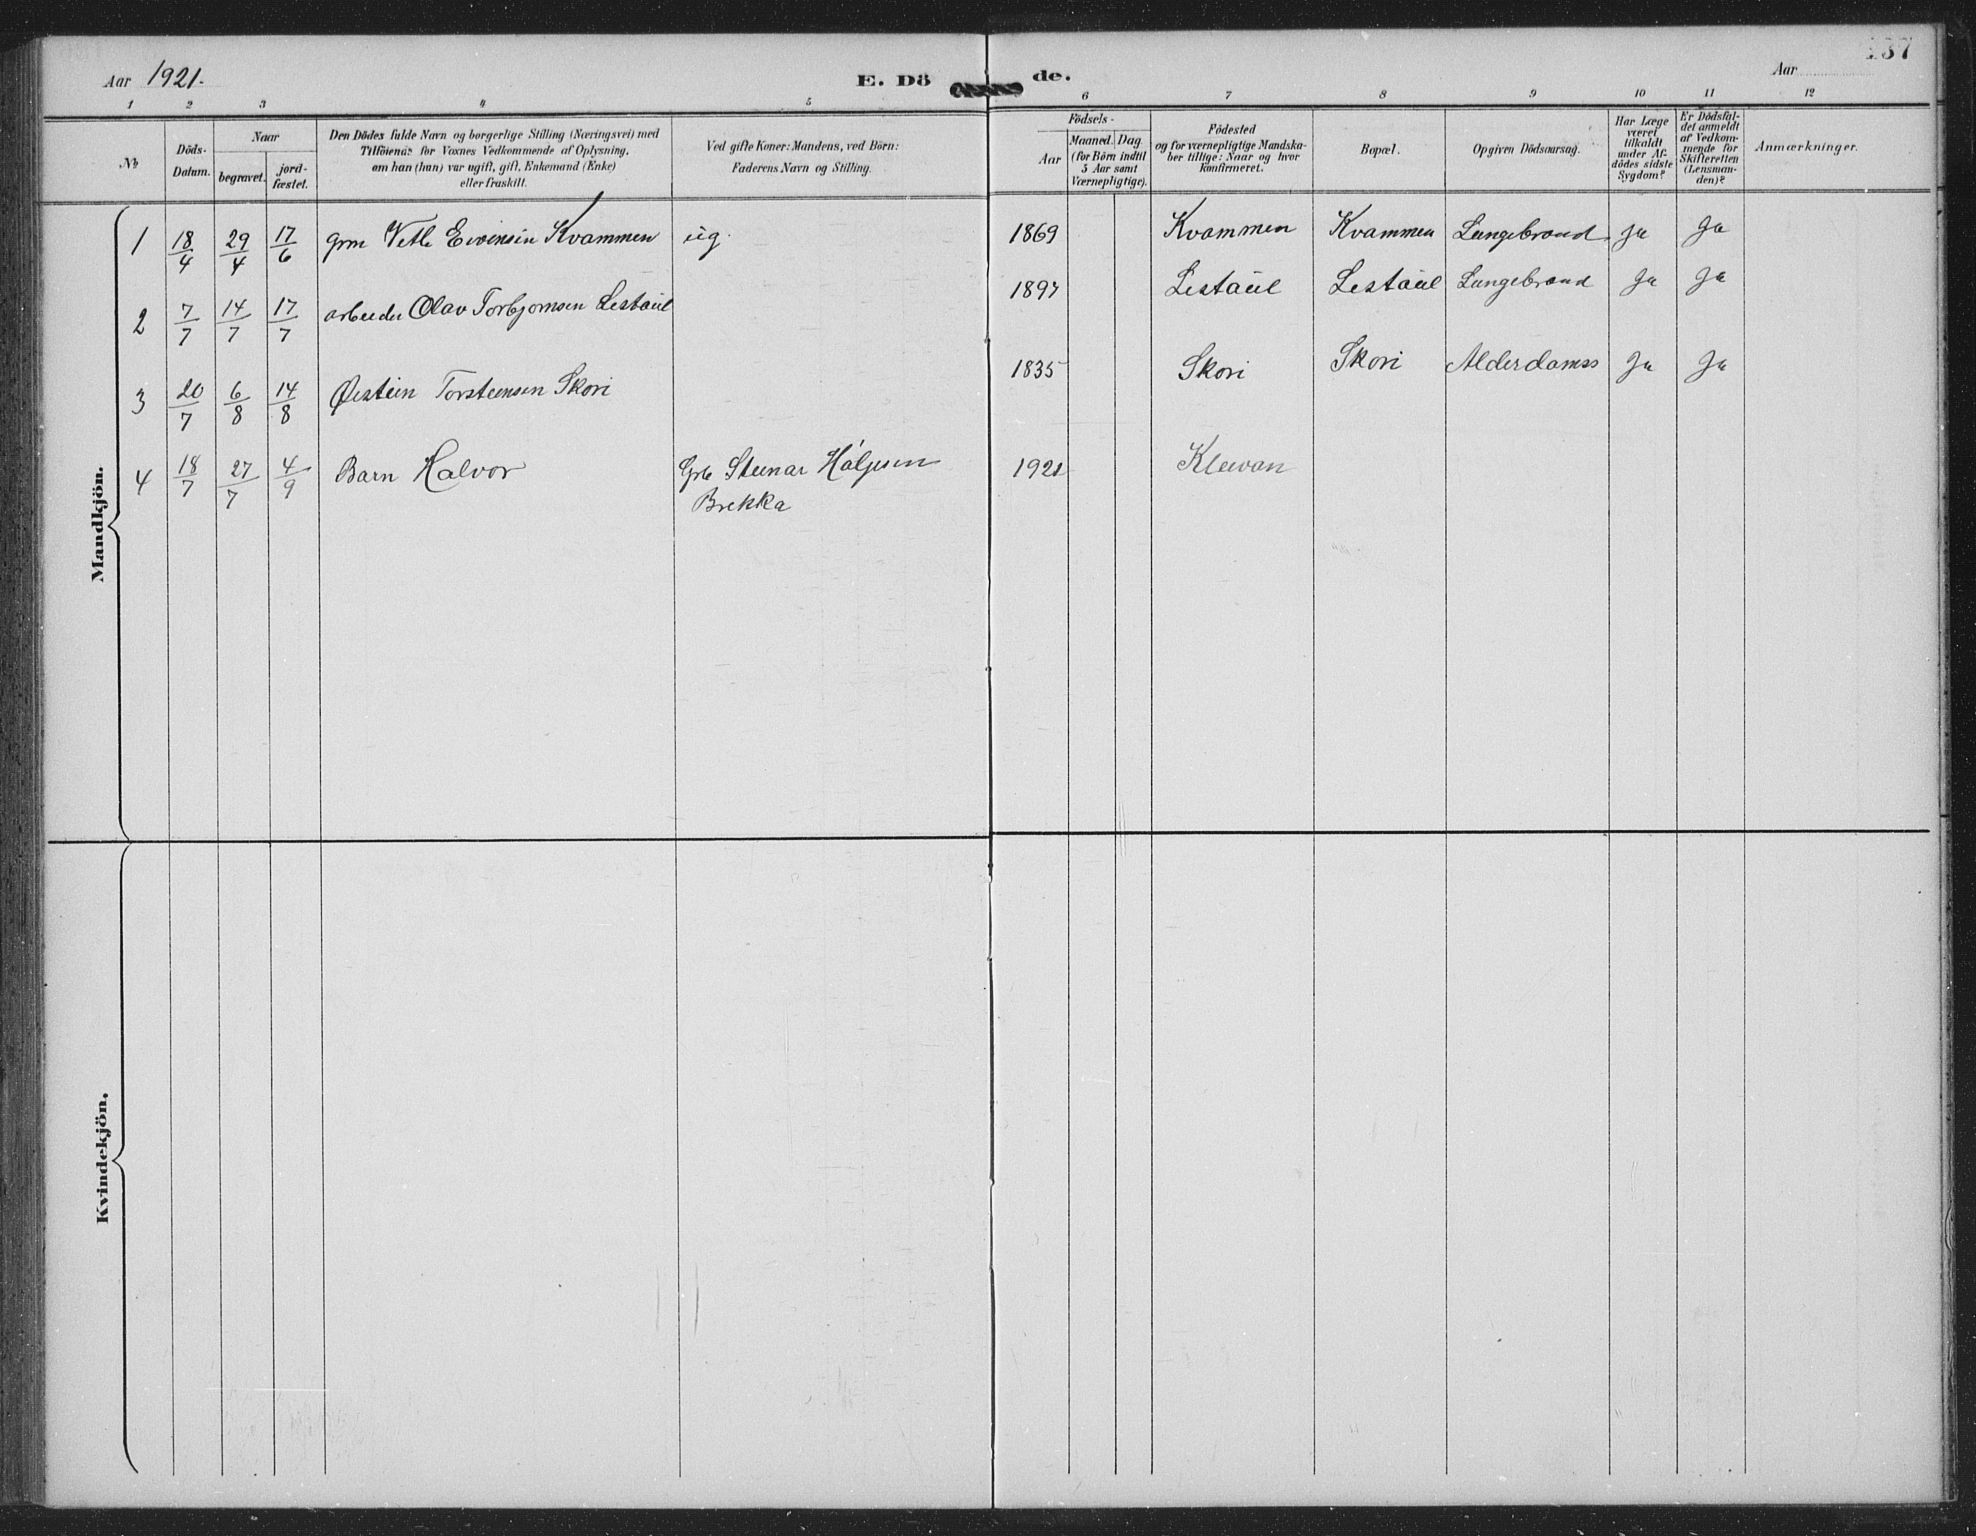 Aar 1921.
E. Dö de.
Aar
137
1 2 3 4 5 6 7 8 9 10 11 12
№
Döds-
Datum.
Naar
begravet.
jord-
fæstet.
Den Dödes fulde Navn og borgerlige Stilling (Næringsvei) med
Tilföiende for Voxnes Vedkommende af Oplysning,
om han (hun) var ugift, gift, Enkemand (Enke)
eller fraskilt.
Ved gifte Koner: Mandens, ved Börn:
Faderens Navn og Stilling.
Födsels-
Aar
Maaned.
Dag
(for Börn indtil
5 Aar samt
Værnepligtige).
Födested
og for værnepligtige Mandska-
ber tillige: Naar og hvor
konfirmeret.
Bopæl.
Opgiven Dödsaarsag.
Har Læge
været
tilkaldt
under Af-
dödes sidste
Sygdom?
Er Dödsfal-
det anmeldt
af Vedkom-
mende for
Skifteretten
(Lensman-
den)?
Anmærkninger.
Mandkjön.
1 18/4 29/4 17/6 grm Vetle Eivensen Kvammen ug. 1869 Kvammen Kvammen Lungebrand Ja Ja
2 7/7 14/7 17/7 arbeider Olav Torbjornsen Lestaul 1897 Lestaul Lestaul Lungebrand Ja Ja
3 20/7 6/8 14/8 Øistein Torsteinsen Skori 1835 Skori Skori Alderdomss Ja Ja
4 18/7 27/7 4/9 Barn Halvor Grb Steinar Håljesen 1921 Kleivan
Brekka
Kvindekjön.